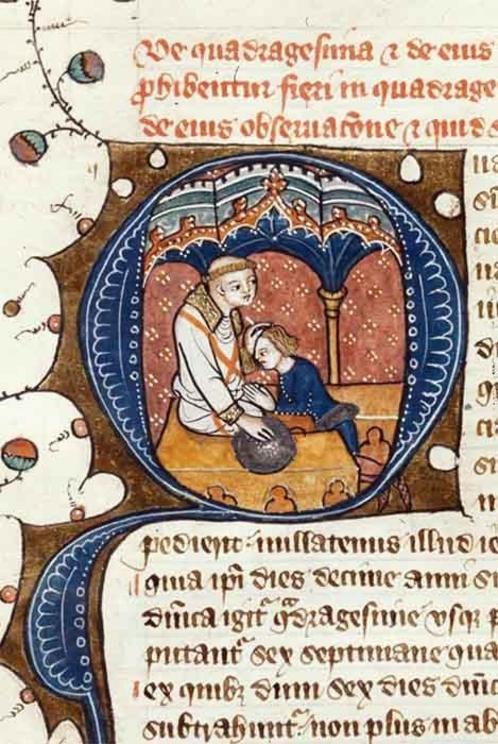 De quadragesima ⁊ de eius
ꝓhibentur fieri in quadrage
de eius obseruacõne ⁊ quid
pedierit nullatenus illud ie
quia ip̃i dies decime anni s
dñica igit᷑ q̃dragesime vsq; p
putant᷑ sex septimane qua
ex quib; dum sex dies dñic
subtrahunt᷑ non plus in ab